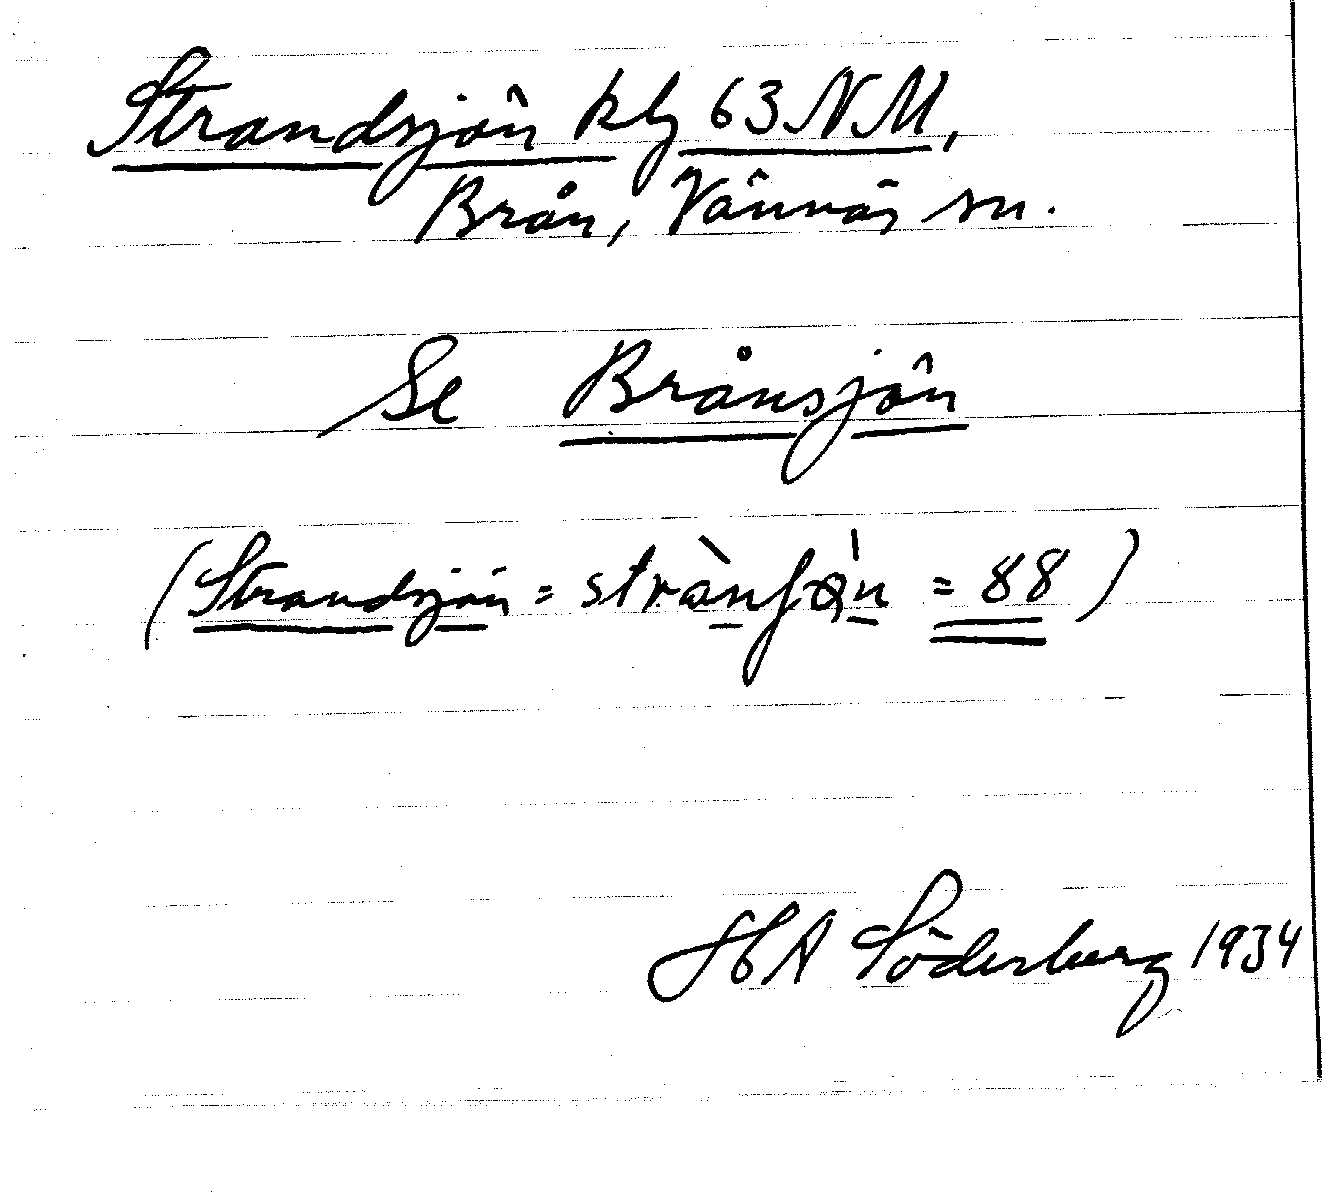 Strandsjön kbg 63 NM,
Brån, Vännäs sn.
Se Brånsjön
(Strandsjön = strànʃø̀n = 88)
HA Söderberg 1934